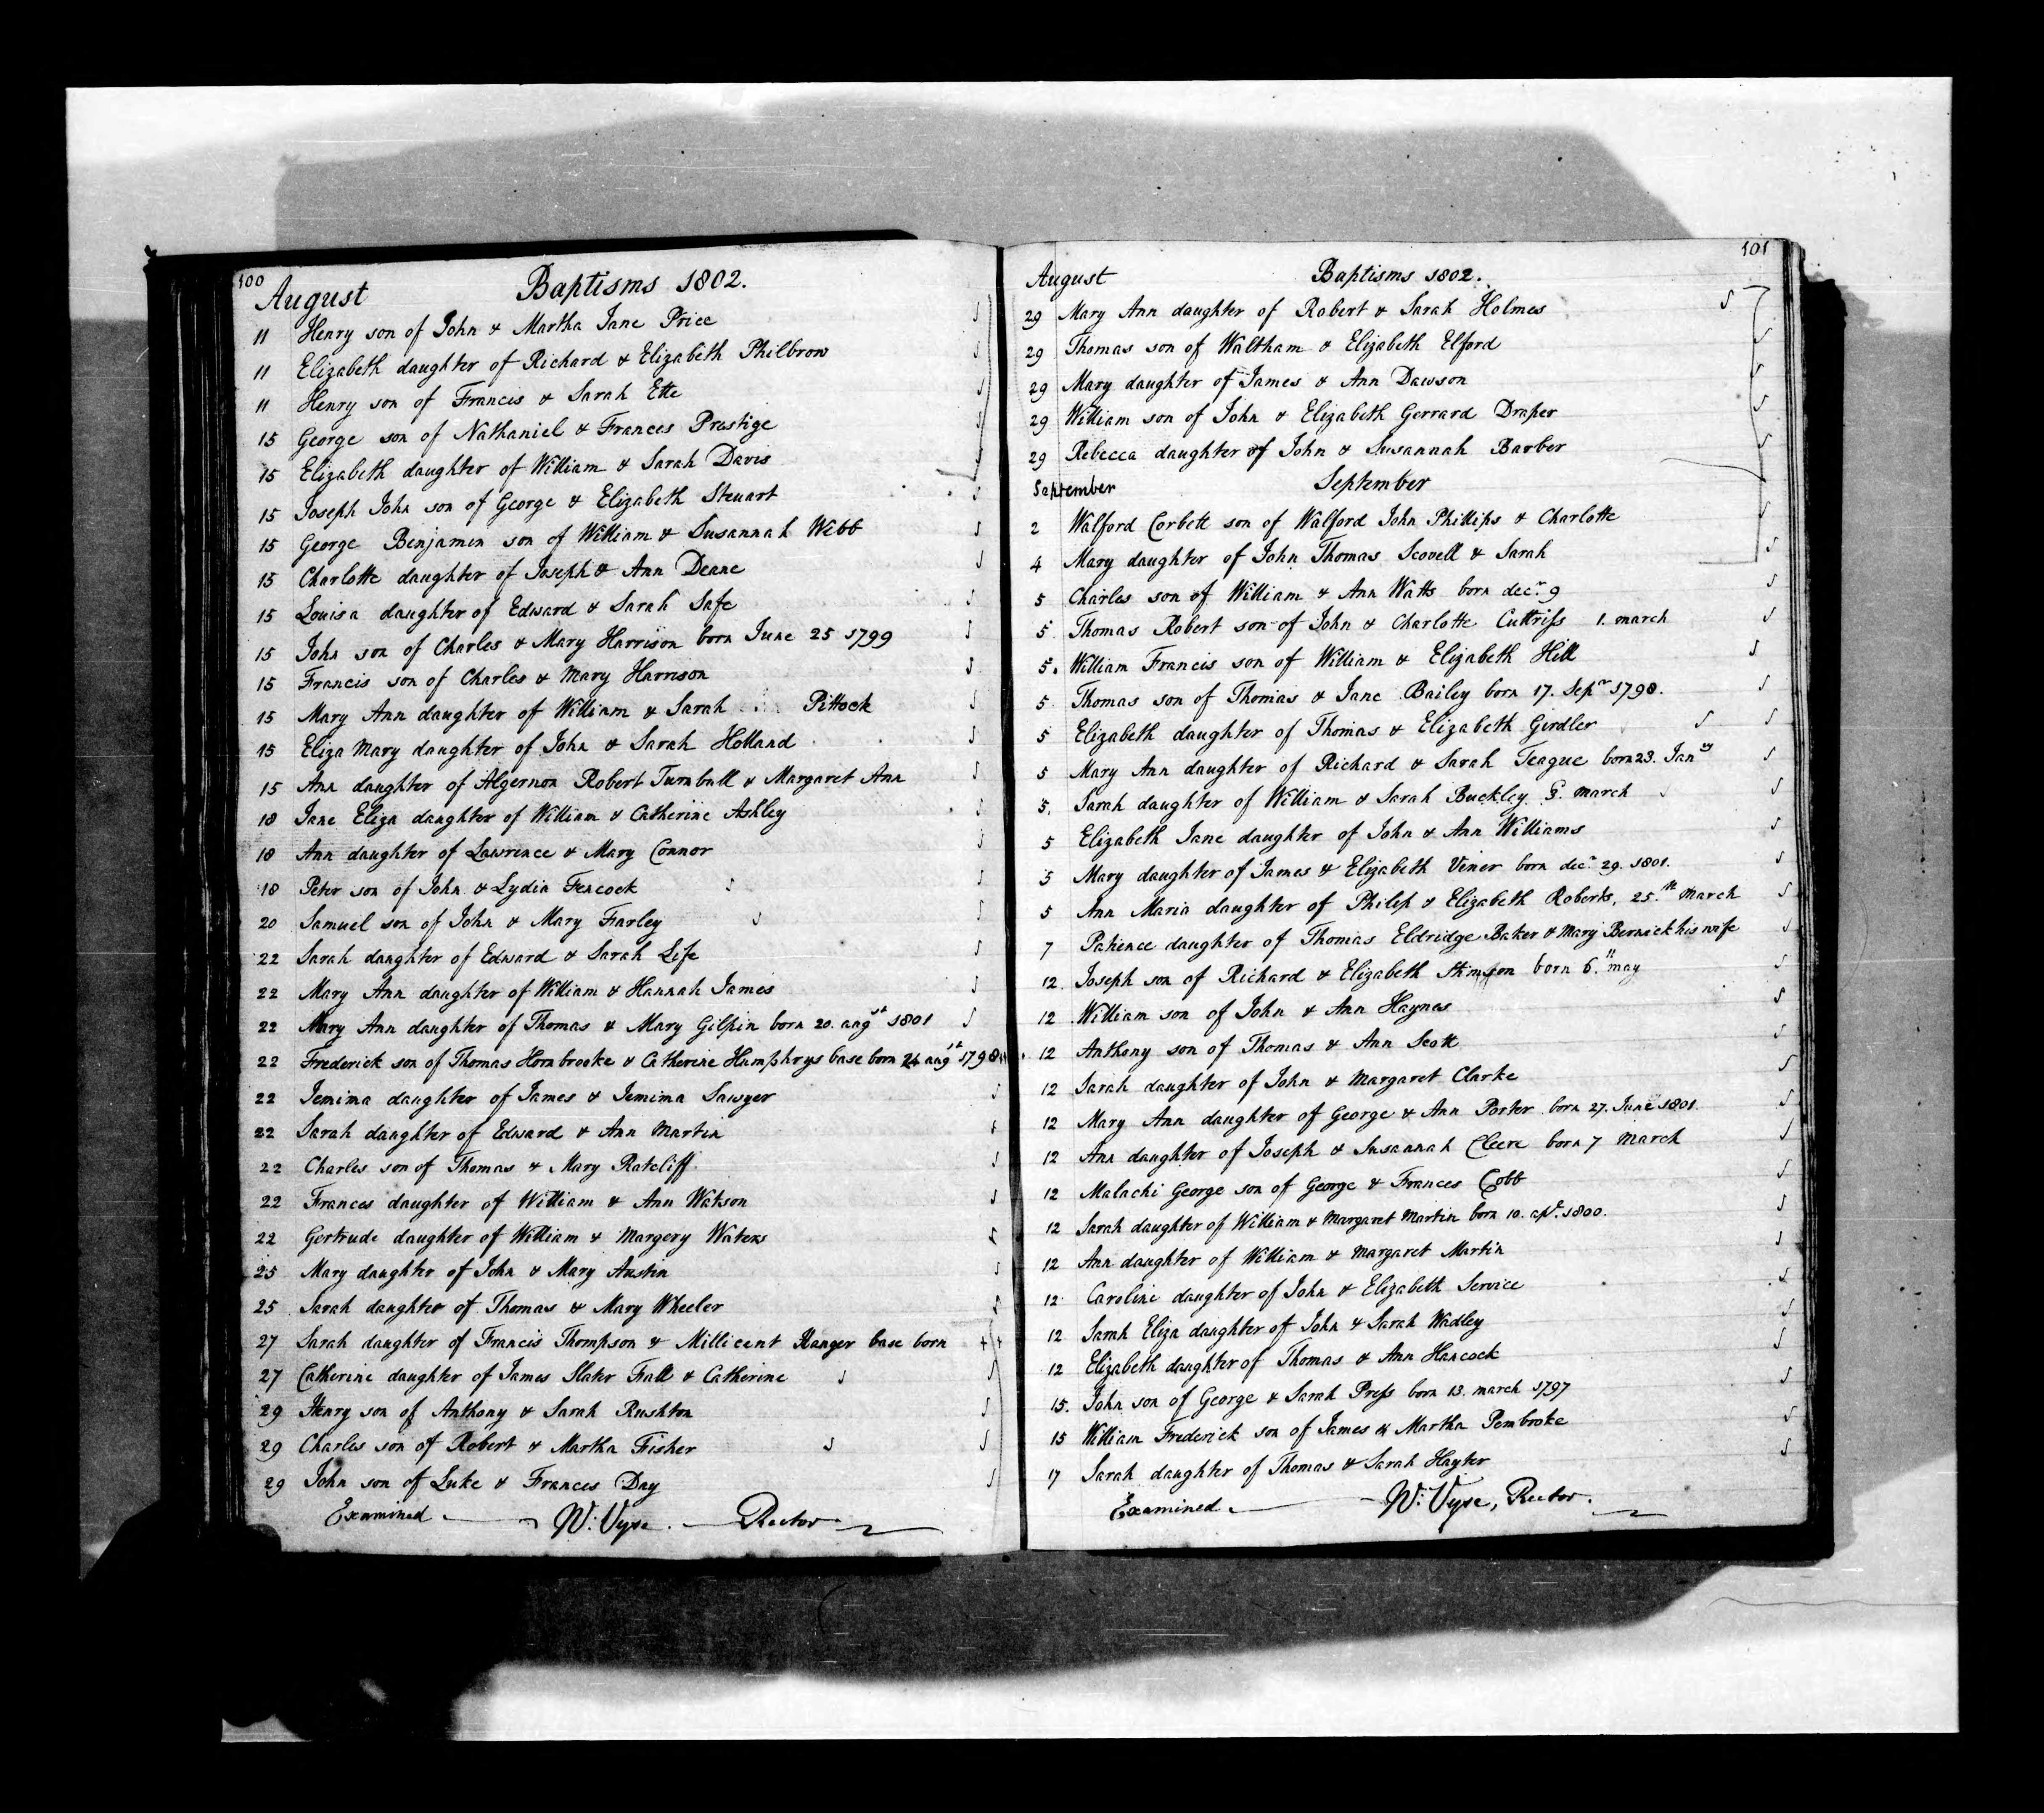 100
Baptisms 1802.
August
11 Henry son of John & Martha Jane Price
11 Elizabeth daughter of Richard & Elizabeth Philbrow
11 Henry son of Francis & Sarah Ette
15 George son of Nathaniel & Frances Prestige
15 Elizabeth daughter of William & Sarah Davis
15 Joseph John son of George & Elizabeth Steuart
15 George Benjamin son of William & Susannah Webb
15 Charlotte daughter of Joseph & Ann Deane
15 Louisa daughter of Edward & Sarah Safe
15 John son of Charles & Mary Harrison born June 25 1799
15 Francis son of Charles & Mary Harrison
15 Mary Ann daughter of William & Sarah Pittock
15 Eliza Mary daughter of John & Sarah Holland
15 Ann daughter of Algernon Robert Turnbull & Margaret Ann
18 Jane Eliza daughter of William & Catherine Ashley
18 Ann daughter of Lawrence & Mary Connor
18 Peter son of John & Lydia Feacock
20 Samuel son of John & Mary Farley
22 Sarah daughter of Edward & Sarah Life
22 Mary Ann daughter of William & Hannah James
22 Mary Ann daughter of Thomas & Mary Gilpin born 20. augst 1801
22 Frederick son of Thomas Hornbrooke & Catherine Humphrys base born 24 augst 1798
22 Jemima daughter of James & Jemima Sawyer
22 Sarah daughter of Edward & Ann Martin
22 Charles son of Thomas & Mary Ratcliff
22 Frances daughter of William & Ann Watson
22 Gertrude daughter of William & Margery Waters
25 Mary daughter of John & Mary Austin
25 Sarah daughter of Thomas & Mary Wheeler
27 Sarah daughter of Francis Thompson & Millicent Ranger base born
27 Catherine daughter of James Slater Fall & Catherine
29 Henry son of Anthony & Sarah Rushton
29 Charles son of Robert & Martha Fisher
29 John son of Luke & Frances Day
Examined W: Vyse. Rector
101
August Baptisms 1802.
29 Mary Ann daughter of Robert & Sarah Holmes
29 Thomas son of Waltham & Elizabeth Elford
29 Mary daughter of James & Ann Dawson
29 William son of John & Elizabeth Gerrard Draper
29 Rebecca daughter of John & Susannah Barber
September September
2 Walford Corbett son of Walford John Phillips & Charlotte
4 Mary daughter of John Thomas Scovell & Sarah
5 Charles son of William & Ann Watts born decr. 9
5 Thomas Robert son of John & Charlotte Cuttriss 1. march
5. William Francis son of William & Elizabeth Hill
5 Thomas son of Thomas & Jane Bailey born 17. Sepr 1798.
5 Elizabeth daughter of Thomas & Elizabeth Girdler
5 Mary Ann daughter of Richard & Sarah Teague born 23. Jany
5. Sarah daughter of William & Sarah Buckley march
5 Elizabeth Jane daughter of John & Ann Williams
5 Mary daughter of James & Elizabeth Viner born decr 29. 1801.
5 Ann Maria daughter of Philip & Elizabeth Roberts, 25.th march
7 Patience daughter of Thomas Eldridge Baker & Mary Bernick his wife
12. Joseph son of Richard & Elizabeth Stimson born 6. may
12 William son of John & Ann Haynes
12 Anthony son of Thomas & Ann Scott
12 Sarah daughter of John & Margaret Clarke
12 Mary Ann daughter of George & Ann Porter born 27. June 1801.
12 Ann daughter of Joseph & Susannah Cleere born 7 march
12 Malachi George son of George & Frances Cobb
12 Sarah daughter of William & Margaret Martin born 10. apl. 1800.
12 Ann daughter of William & Margaret Martin
12 Caroline daughter of John & Elizabeth Service
12 Sarah Eliza daughter of John & Sarah Wadley
12 Elizabeth daughter of Thomas & Ann Hancock
15. John son of George & Sarah Press born 13. march 1797
15 William Frederick son of James & Martha Pembroke
17 Sarah daughter of Thomas & Sarah Hayter
Examined W: Vyse, Rector.